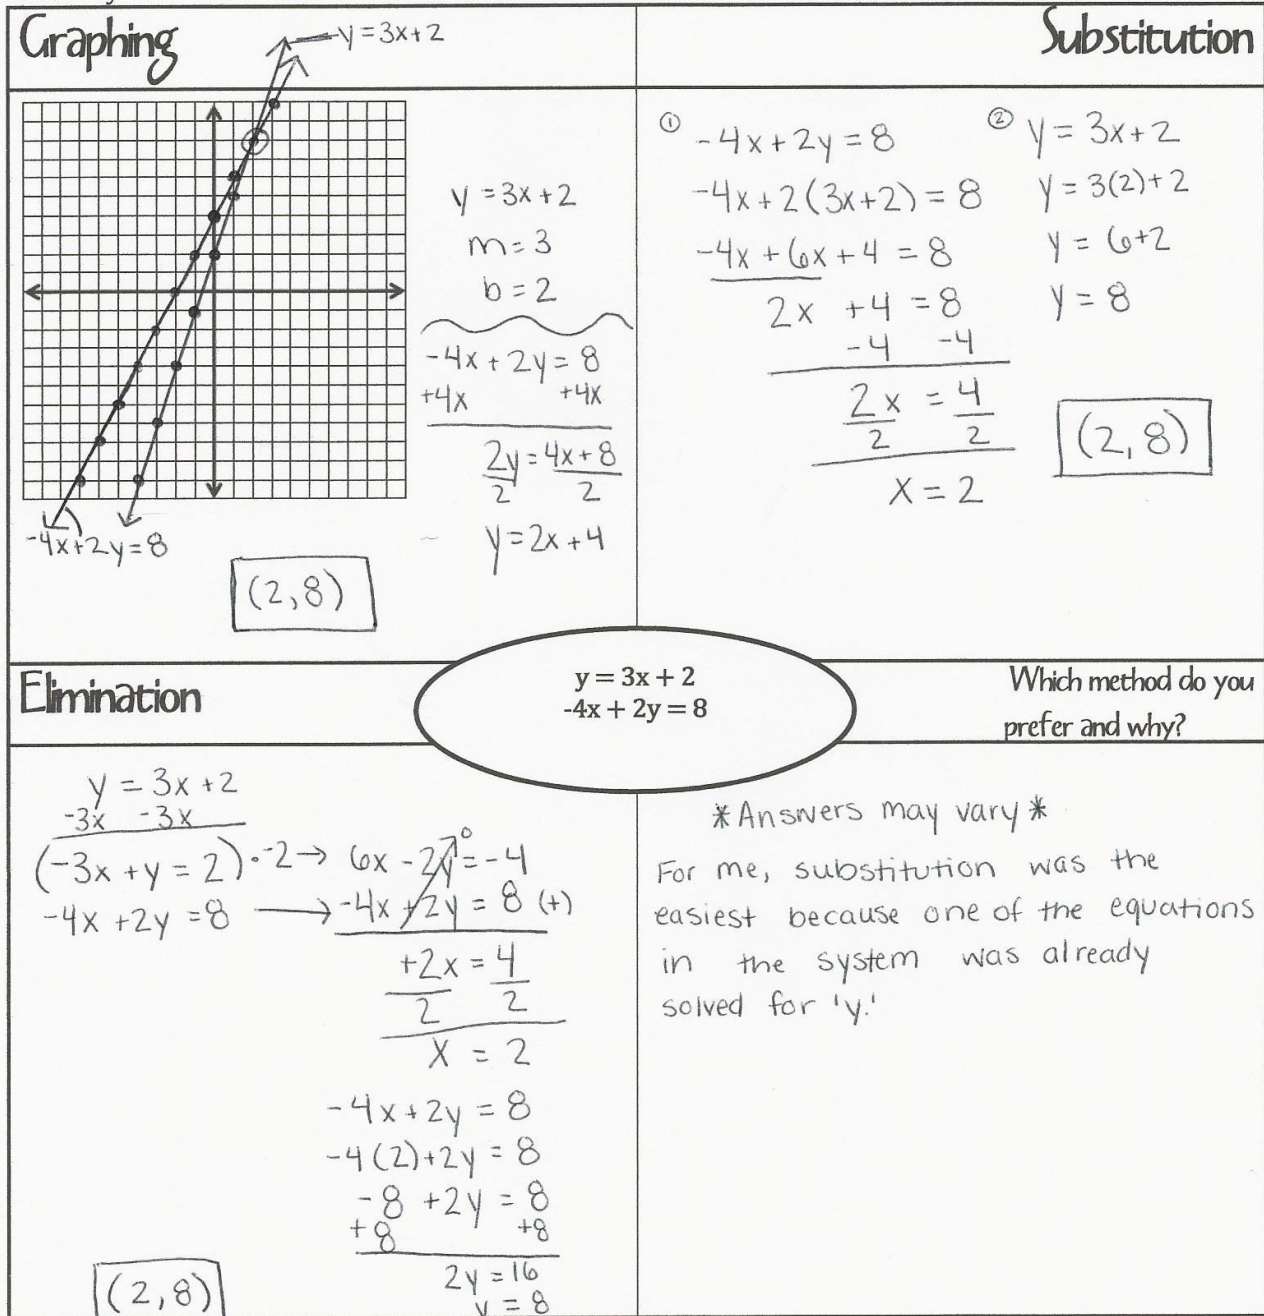 Graphing
y = 3x + 2
y = 3x + 2
m = 3
b = 2
-4x + 2y = 8
+4x +4x
2y = 4x + 8
2 2
y = 2x + 4
-4x + 2y = 8
(2, 8)
Substitution
① -4x + 2y = 8
-4x + 2(3x + 2) = 8
-4x + 6x + 4 = 8
2x + 4 = 8
-4 -4
2x = 4
2 2
x = 2
② y = 3x + 2
y = 3(2) + 2
y = 6 + 2
y = 8
(2, 8)
y = 3x + 2
-4x + 2y = 8
Elimination
y = 3x + 2
-3x -3x
(-3x + y = 2) · -2 → 6x - 2y = -4
0
-4x + 2y = 8 → -4x + 2y = 8 (+)
+2x = 4
2 2
x = 2
-4x + 2y = 8
-4(2) + 2y = 8
-8 + 2y = 8
+8 +8
2y = 16
y = 8
(2, 8)
Which method do you
prefer and why?
*Answers may vary*
For me, substitution was the
easiest because one of the equations
in the system was already
solved for 'y.'